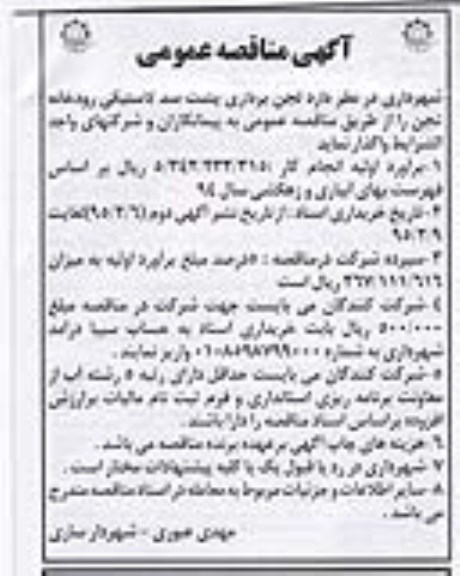 آگهی مناقصه عمومی
شهرداری در نظر دارد لجن برداری پشت سد لاستیکی رودخانه
تجن را از طریق مناقصه عمومی به پیمانکاران و شرکتهای واجد
الشرایط واگذار نماید
۱-برآورد اولیه انجام کار : ریال بر اساس
فهرست بهای آبیاری و زهکشی سال ۹۴
۲-تاریخ خریداری اسناد : از تاریخ نشر آگهی دوم (۹۵/۲/۶) لغایت
۹۵/۲/۹
۳-سپرده شرکت در مناقصه : ۵درصد مبلغ برآورد اولیه به میزان
۲۶۷/۱۱۱/۶۱۶ ریال است
٤-شرکت کنندگان می بایست جهت شرکت در مناقصه مبلغ
۵۰۰/۰۰۰ ریال بابت خریداری اسناد به حساب سیبا درآمد
شهرداری به شماره واریز نمایند .
۵-شرکت کنندگان می بایست حداقل دارای رتبه ۵ رشته آب از
معاونت برنامه ریزی استانداری و فرم ثبت نام مالیات برارزش
افزوده براساس اسناد مناقصه را دارا باشند .
۶-هزینه های چاپ آگهی بر عهده برنده مناقصه می باشد .
۷-شهرداری در رد یا قبول یک یا کلیه پیشنهادات مختار است .
۸-سایر اطلاعات و جزئیات مربوط به معامله در اسناد مناقصه مندرج
می باشد .
مهدی عبوری - شهردار ساری